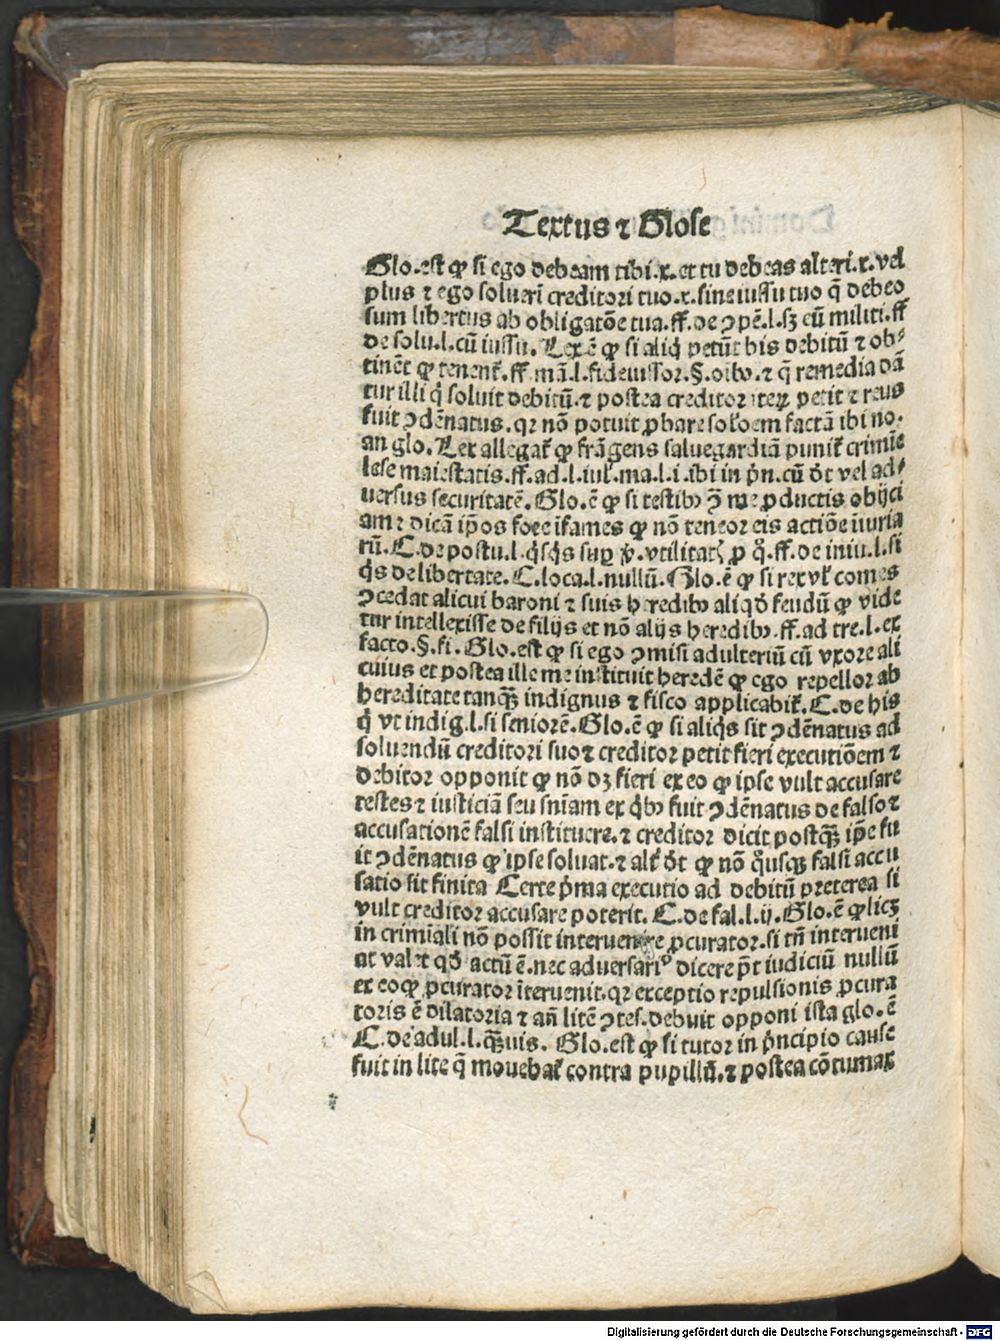 Textus ⁊ Glose
Glo.est ꝙ si ego debeam tibi.x.et tu debeas alteri.x.vel
plus ⁊ ego soluerī creditori tuo.x.sine iussu tuo q̄ debeo
sum libertus ab obligatōe tua.ff.de ↄpē.l.sꝫ cū militi.ff
de solu.l.cū iussu. Lex ē ꝙ si aliq̇ petūt his debitū ⁊ ob⸗
tinēt ꝙ tenent᷑.ff.mā.l.fideiussor.§.oibꝰ.⁊ q̄ remedia dā
tur illi q̇ soluit debitū.⁊ postea creditor iteꝝ petit ⁊ reus
fuit ↄdēnatus.qꝛ nō potuit ꝓbare sol᷑oem factā ibi no.
an glo. Lex allegat᷑ ꝙ frāgens saluegardiā punit᷑ crimīe
lese maiestatis.ff.ad.l.iul᷑.ma.l.i.ibi in p̄n.cū d̄t vel ad⸗
uersus securitatē. Glo.ē ꝙ si testibꝰ ↄ̄ me ꝓductis obijci
am ⁊ dicā ip̄os fore ifames ꝙ nō teneor eis actiōe iiuria
rū.C.de postu.l.q̇sq̇s suꝑ v̄.vtilitatꝭ ꝓ q̊.ff.de iniu.l.si
q̇s de libertate. C.loca.l.nullū. Glo.ē ꝙ si rex vl᷑ comes
ↄcedat alicui baroni ⁊ suis heredibꝰ aliqd̄ feudū ꝙ vide
tur intellexisse de filijs et nō alijs heredibꝰ.ff.ad tre.l.ex
facto.§.fi. Glo.est ꝙ si ego ↄmisi adulteriū cū vxore ali
cuius et postea ille me instituit heredē ꝙ ego repellor ab
hereditate tanqꝫ̄ indignus ⁊ fisco applicabit᷑.C.de his
q̇ vt indig.l.si seniorē. Glo.ē ꝙ si aliq̇s sit ↄdēnatus ad
soluendū creditori suo ⁊ creditor petit fieri executiōem ⁊
debitor opponit ꝙ nō dꝫ fieri ex eo ꝙ ipse vult accusare
testes ⁊ iusticiā seu sn̄iam ex q̇bꝰ fuit ↄdēnatus de falso ⁊
accusationē falsi instituere.⁊ creditor dicit postqꝫ̄ ip̄e fu
it ↄdēnatus ꝙ ipse soluat.⁊ alt᷑ d̄t ꝙ nō q̊usqꝫ falsi accu
satio sit finita Certe p̄ma executio ad debitū preterea si
vult creditor accusare poterit. C.de fal.l.ij. Glo.ē ꝙ licꝫ
in crimīali nō possit interuenire ꝓcurator.si tn̄ interueni
at valet qd̄ actū ē.nec aduersariꝰ dicere p̄t iudiciū nullū
ex eo ꝙ ꝓcurator īteruenit.qꝛ exceptio repulsionis ꝓcura
toris ē dilatoria ⁊ an̄ litē ↄtes.debuit opponi ista glo.ē
C.de adul.l.qꝫ̄uis. Glo.est ꝙ si tutor in p̄ncipio cause
fuit in lite q̄ mouebat᷑ contra pupillū.⁊ postea cōtumax
Digitalisierung gefördert durch die Deutsche Forschungsgemeinschaft - DFG